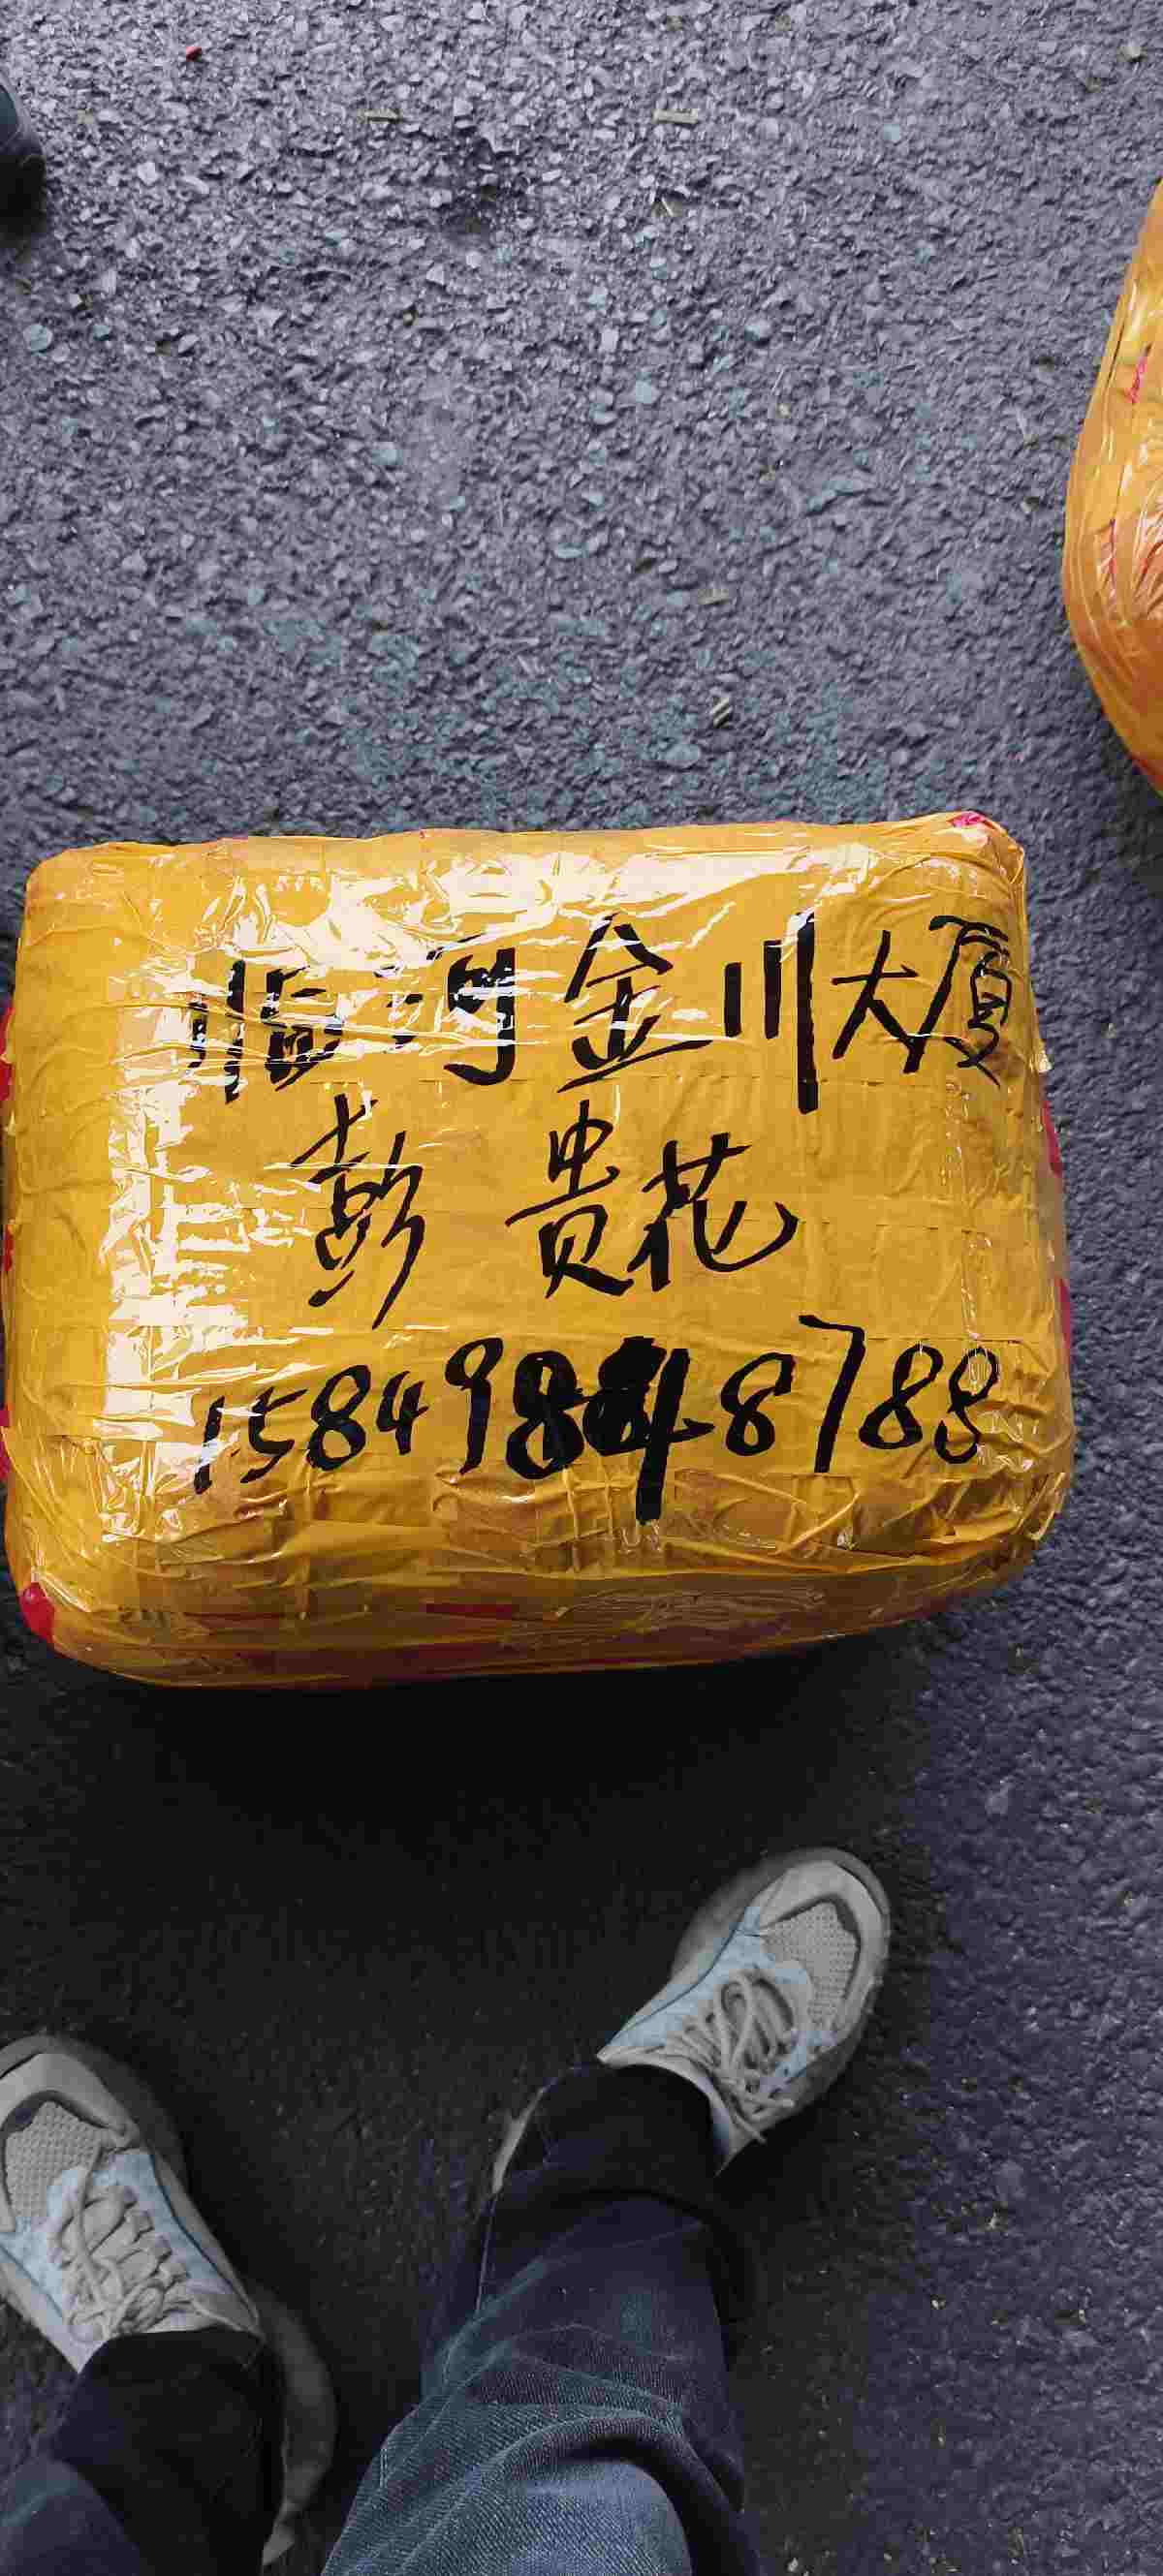 临河金川大厦
彭贵花
15849848788